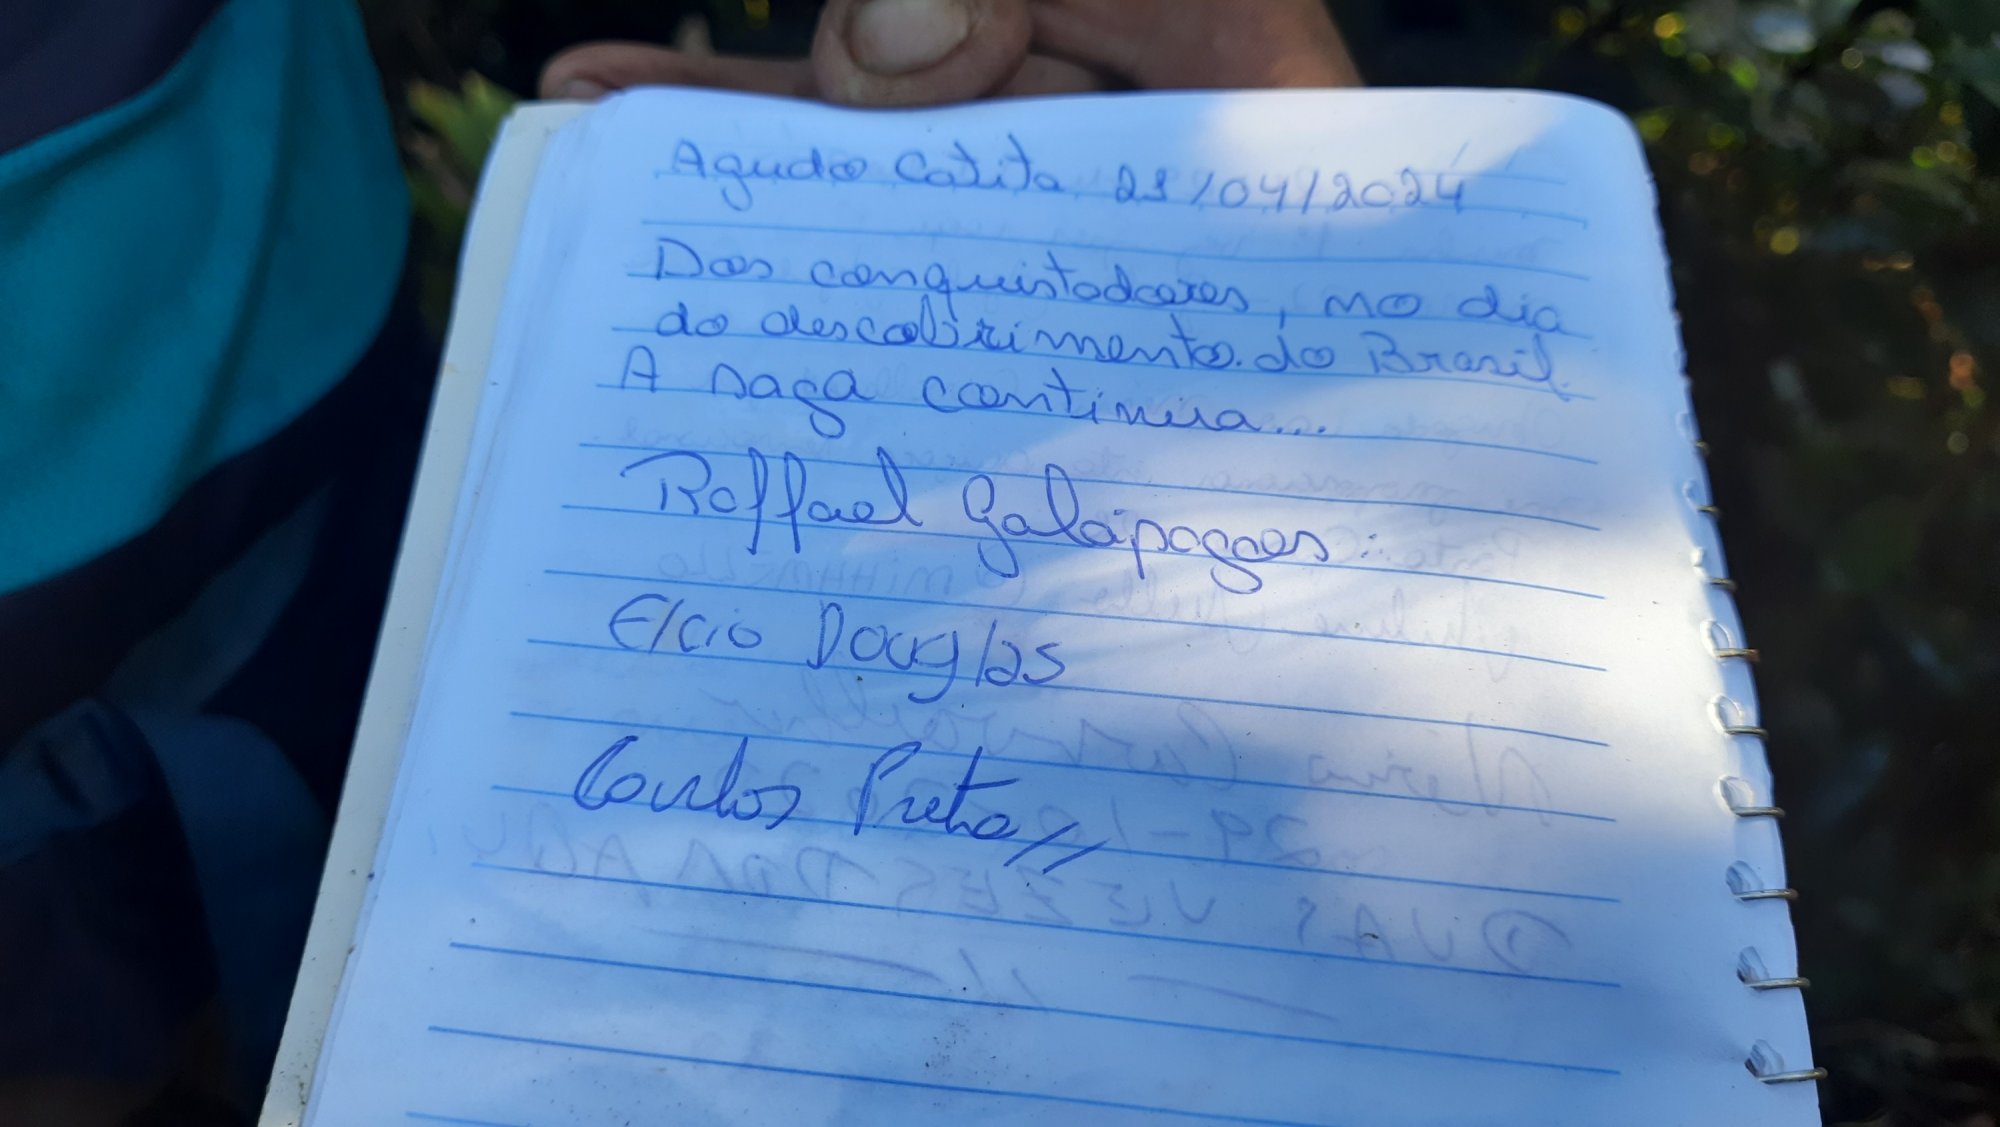 Agudo Catita 21/04/2024
Dos conquistadores, no dia
do descobrimento do Brasil.
A saga continua...
Raffael Galápagoes
Elcio Douglas
Carlos Preto